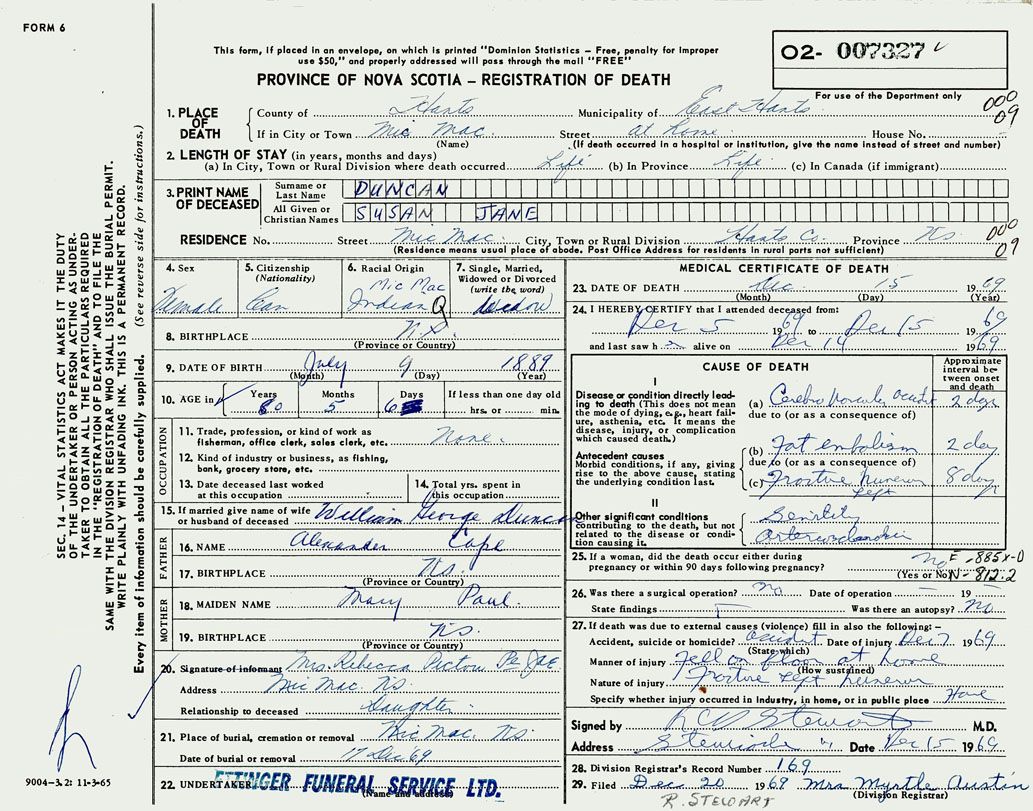 FORM 6
This form, if placed in an envelope, on which is printed "Dominion Statistics – Free, penalty for improper
use $50," and properly addressed will pass through the mail "FREE"
PROVINCE OF NOVA SCOTIA – REGISTRATION OF DEATH
02- 007327
For use of the Department only
000
09
1. PLACE OF DEATH
County of Hants Municipality of East Hants
If in City or Town Mic Mac Street at home House No.
(Name) (If death occurred in a hospital or institution, give the name instead of street and number)
2. LENGTH OF STAY (in years, months and days)
(a) In City, Town or Rural Division where death occurred Life (b) In Province Life (c) In Canada (if immigrant)
3. PRINT NAME OF DECEASED
Surname or Last Name DUNCAN
All Given or Christian Names SUSAN JANE
RESIDENCE No. Street Mic Mac City, Town or Rural Division Hants Co. Province N.S.
(Residence means usual place of abode. Post Office Address for residents in rural parts not sufficient)
000
09
4. Sex Female
5. Citizenship (Nationality) Can
6. Racial Origin Mic Mac Indian
7. Single, Married, Widowed or Divorced (write the word) Widow
8. BIRTHPLACE N.S.
(Province or Country)
9. DATE OF BIRTH July 9 1889
(Month) (Day) (Year)
10. AGE in Years 80 Months 5 Days 6 If less than one day old hrs. or min.
OCCUPATION
11. Trade, profession, or kind of work as fisherman, office clerk, sales clerk, etc. None
12. Kind of industry or business, as fishing, bank, grocery store, etc.
13. Date deceased last worked at this occupation
14. Total yrs. spent in this occupation
15. If married give name of wife or husband of deceased William George Duncan
FATHER
16. NAME Alexander Cope
17. BIRTHPLACE N.S.
(Province or Country)
MOTHER
18. MAIDEN NAME Mary Paul
19. BIRTHPLACE N.S.
(Province or Country)
20. Signature of informant Mrs. Rebecca Pictou
Address Mic Mac N.S.
Relationship to deceased Daughter
21. Place of burial, cremation or removal Mic Mac N.S.
Date of burial or removal 17 Dec 69
22. UNDERTAKER ETTINGER FUNERAL SERVICE LTD.
(Name and address)
MEDICAL CERTIFICATE OF DEATH
23. DATE OF DEATH Dec. 15 1969
(Month) (Day) (Year)
24. I HEREBY CERTIFY that I attended deceased from:
Dec 5 1969 to Dec 15 1969
and last saw h alive on Dec 14 1969
CAUSE OF DEATH
Approximate interval between onset and death
I
Disease or condition directly leading to death (This does not mean the mode of dying, e.g., heart failure, asthenia, etc. It means the disease, injury, or complication which caused death.)
(a) Cerebro vascular accident 2 days
due to (or as a consequence of)
Antecedent causes
Morbid conditions, if any, giving rise to the above cause, stating the underlying condition last.
(b) Fat embolism 2 day
due to (or as a consequence of)
(c) Fractive humerus left 8 day
II
Other significant conditions contributing to the death, but not related to the disease or condition causing it.
Senility
Arteriosclerosis
25. If a woman, did the death occur either during pregnancy or within 90 days following pregnancy? no
(Yes or No)
E-885X-0
N-812:2
26. Was there a surgical operation? no Date of operation 19
State findings Was there an autopsy? no
27. If death was due to external causes (violence) fill in also the following:–
Accident, suicide or homicide? accident Date of injury Dec 7 1969
(State which)
Manner of injury Fell on floor at home
(How sustained)
Nature of injury Fractive left humerus
Specify whether injury occurred in industry, in home, or in public place Home
Signed by Stewart M.D.
Address Date Dec 15 1969
28. Division Registrar's Record Number 169
29. Filed Dec 20 1969 Mrs Myrtle Austin
(Division Registrar)
R. STEWART
SEC. 14 – VITAL STATISTICS ACT MAKES IT THE DUTY
OF THE UNDERTAKER OR PERSON ACTING AS UNDER-
TAKER TO OBTAIN ALL THE PARTICULARS REQUIRED
IN THE "REGISTRATION OF DEATH" AND TO FILE THE
SAME WITH THE DIVISION REGISTRAR WHO SHALL ISSUE THE BURIAL PERMIT.
WRITE PLAINLY WITH UNFADING INK. THIS IS A PERMANENT RECORD.
Every item of information should be carefully supplied. (See reverse side for instructions.)
9004-3.2: 11-3-65